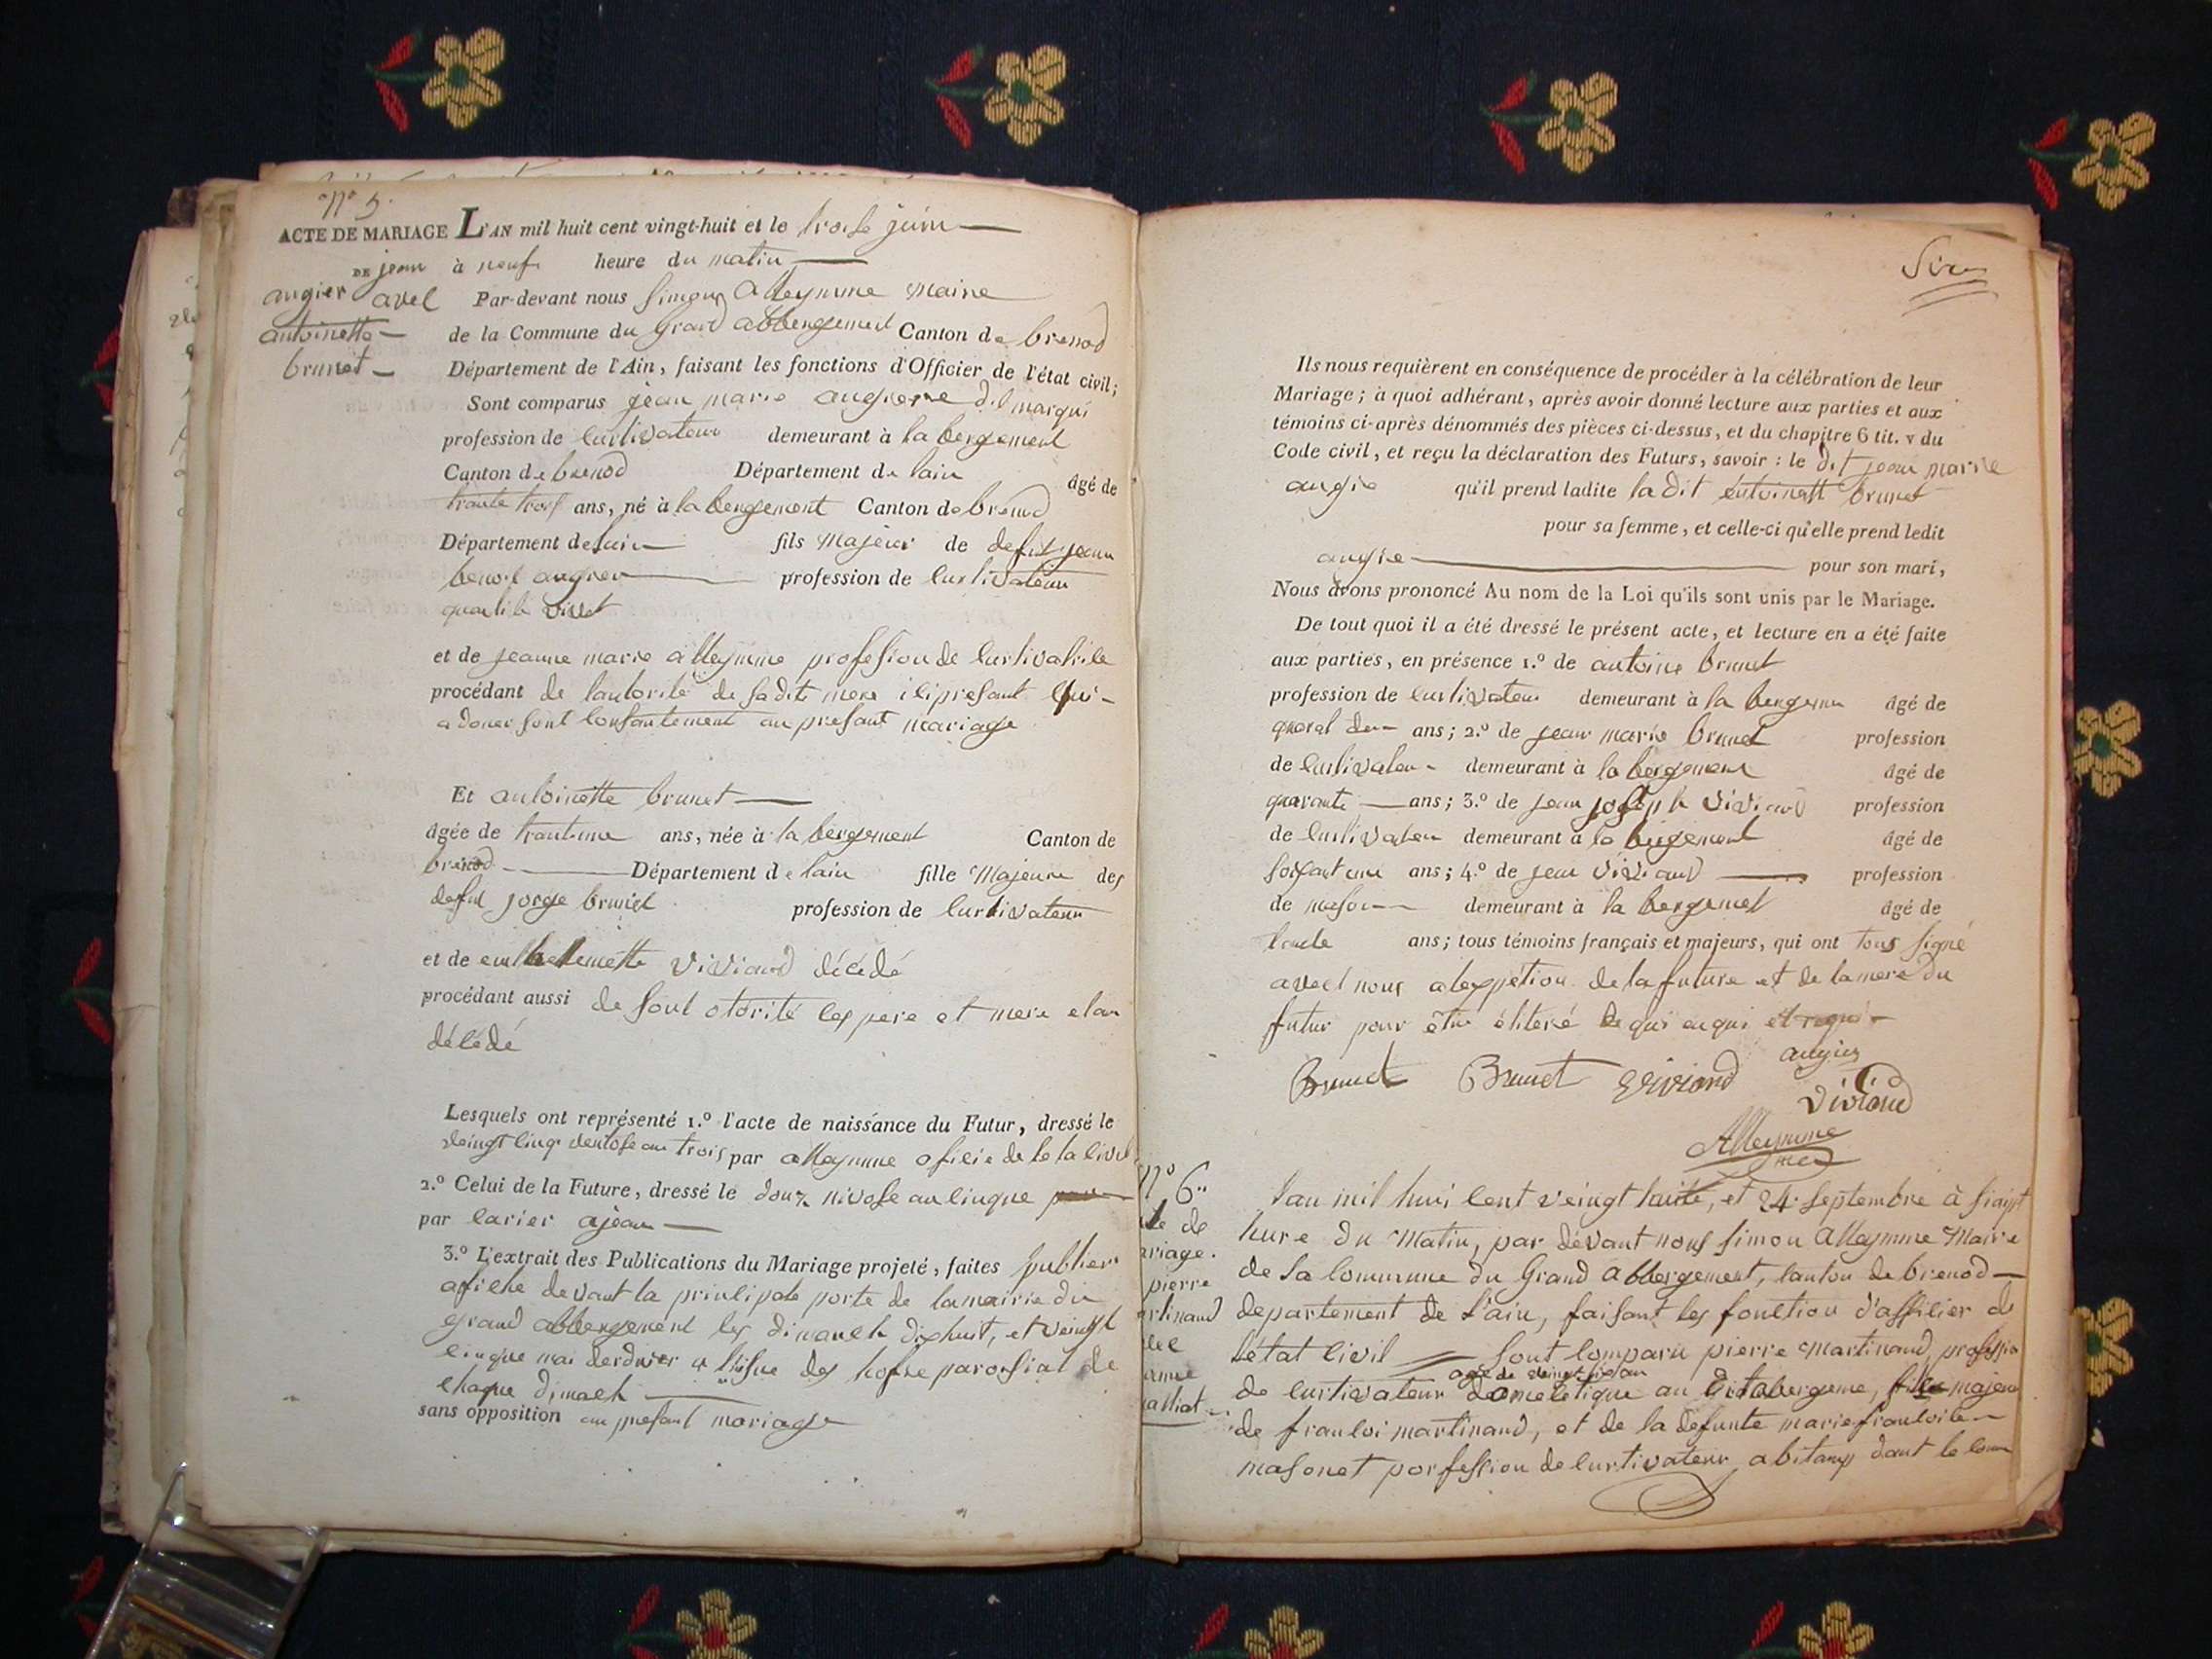 N° 5.
ACTE DE MARIAGE L'AN mil huit cent vingt-huit et le troise juin
DE jean à neuf heure du matin
angier avel Par-devant nous Simon Alleymme maire
antoinette de la Commune du Grand abbergement Canton de brenod
brunet Département de l'Ain, faisant les fonctions d'Officier de l'état civil;
Sont comparus jean marie augiere dit marqui
profession de curtivateur demeurant à la bergement
Canton de brenod Département de lain âgé de
trante trois ans, né à la bergement Canton de brenod
Département de lain fils majeur de defut jean
benoit augier profession de curtivateur
et de jeanne marie alleymme profession de curtivatrice
procédant de lautorité de sadite mere ici presant qui
a doner sont consantement au presant mariage
Et antoinette brunet
âgée de trantune ans, née à la bergement Canton de
brenod Département de lain fille majeure des
defut jorge brunet profession de curtivateur
et de viviand décédé
procédant aussi de sont otorité les pere et mere etan
décédé
Lesquels ont représenté 1.° l'acte de naissance du Futur, dressé le
veingt cinq ventose an trois par alleymme oficie de le ta civil
2.° Celui de la Future, dressé le douz nivose an cinque
par carier ajean
3.° L'extrait des Publications du Mariage projeté, faites publier
afiche devant la principale porte de la mairie du
grand abbergement les dimanch dixhuit, et veingt
cinque mai derdnier a lisue des hofise parossial de
chaque dimach
sans opposition au presant mariage
Six
Ils nous requièrent en conséquence de procéder à la célébration de leur
Mariage; à quoi adhérant, après avoir donné lecture aux parties et aux
témoins ci-après dénommés des pièces ci-dessus, et du chapitre 6 tit. v du
Code civil, et reçu la déclaration des Futurs, savoir : le dit jean marie
augie qu'il prend ladite la dit entoinett brunet
pour sa femme, et celle-ci qu'elle prend ledit
augie pour son mari,
Nous avons prononcé Au nom de la Loi qu'ils sont unis par le Mariage.
De tout quoi il a été dressé le présent acte, et lecture en a été faite
aux parties, en présence 1.° de antoine brunet
profession de curtivateur demeurant à la bergemen âgé de
ans; 2.° de jean marie brunet profession
de curtivateu demeurant à la bergement âgé de
quarante ans; 3.° de jean joseph viviand profession
de curtivateu demeurant à la bergement âgé de
soixantune ans; 4.° de jean viviand profession
de mason demeurant à la bergemet âgé de
ans; tous témoins français et majeurs, qui ont tous signé
avect nous alexpetion de la future et de la mere du
futur pour être éliteré de qui enqui et requi
augier
Brunet Brunet Viviand
viviand
Alleymme
N° 6" Lan mil hui cent veingt huite, et 24 septembre à
de hure du matin, par dévant nous simon Alleymme Maire
ariage. de la commune du Grand Abbergement, canton de brenod
pierre departement de l'ain, faisant les fonction d'officier de
artinand l'état civil sont comparu pierre martinand, profession
age de veingt sis an
de curtivateur domeletique au Gitabergeme, fils majeu
de francoi martinand, et de la defunte marie francoise
masonet porfession de curtivateur abitans dant le com